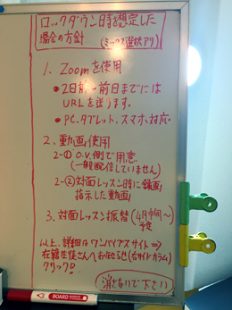 ロックダウン時を想定した
場合の方針
(ミックス選択アリ)
1. Zoomを使用
•2日前〜前日までには
URLを送ります。
•PC、タブレット、スマホ対応。
2. 動画使用
2-① O.V.側で用意
(一般配信していません)
2-② 対面レッスン時に録画
指示した動画
3. 対面レッスン振替(4月中旬〜)
予定
以上、詳細はワンバイブスサイト⇒
在籍生徒さんへお知らせ(右サイドカラム)
クリック!
消さないで下さい
BOARD